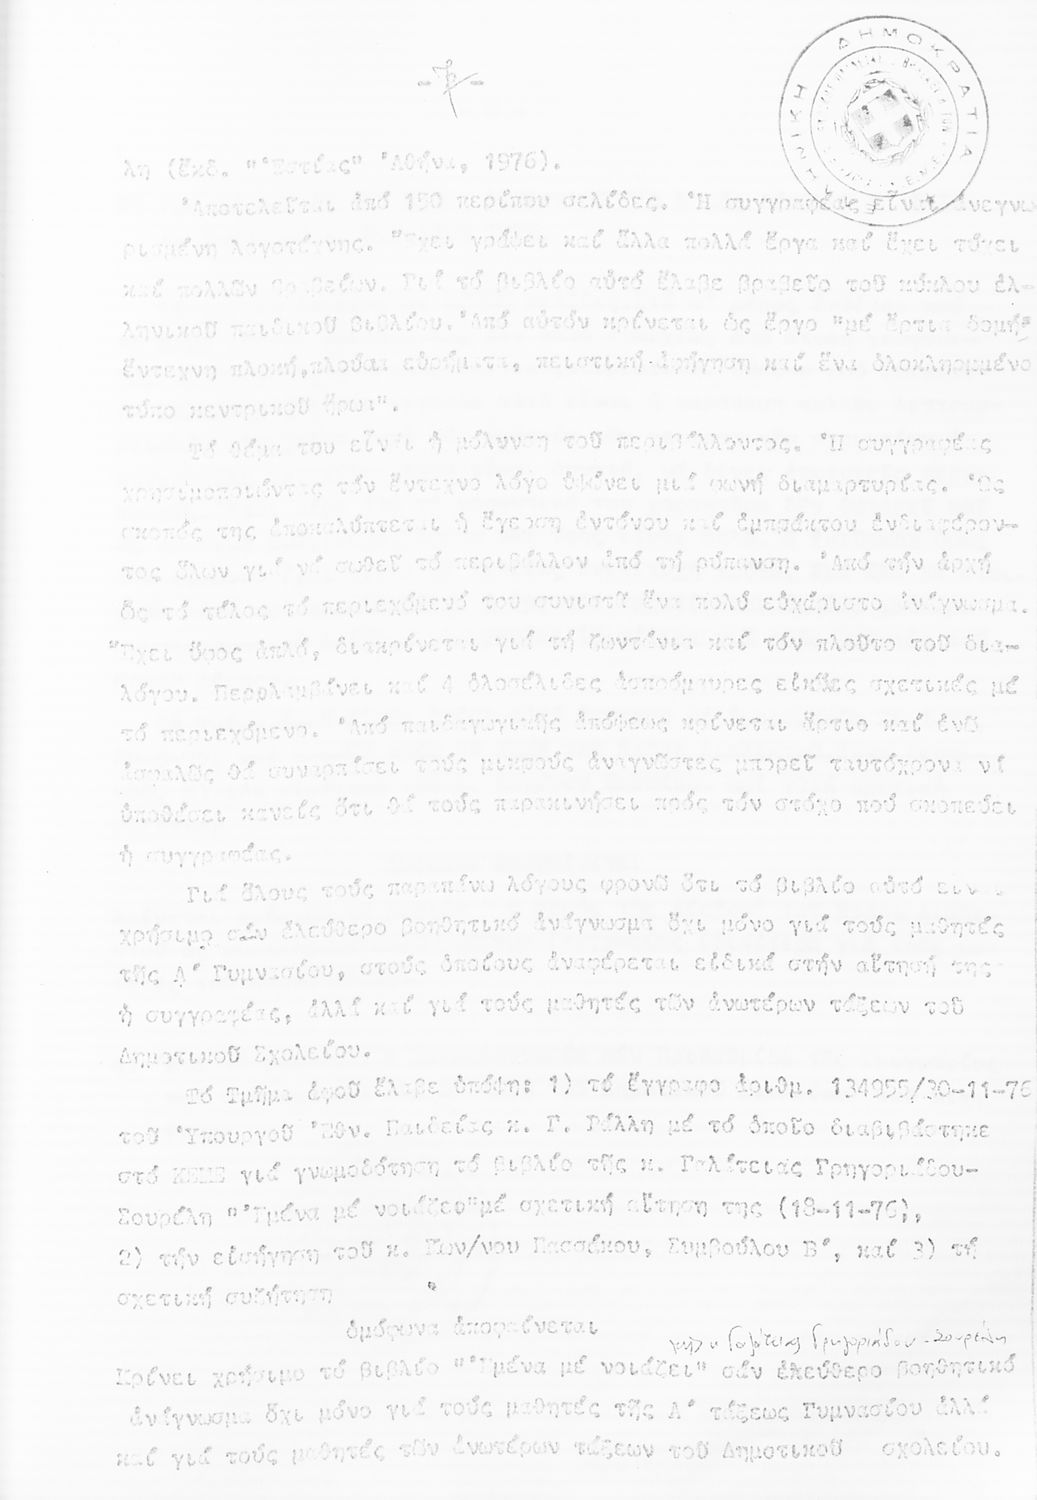 ΔΗΜΟΚΡΑΤΙΑ
λη (ἔκδ. "Ἑστίας" Ἀθήνα, 1976).
Ἀποτελεῖται ἀπό 150 περίπου σελίδες. Ἡ συγγραφέας εἶναι ἀνεγνω
ρισμένη λογοτέχνης. Ἔχει γράψει καί ἄλλα πολλά ἔργα καί ἔχει τύχει
καί πολλῶν βραβείων. Γιά τό βιβλίο αὐτό ἔλαβε βραβεῖο τοῦ κύκλου ἑλ-
ληνικοῦ παιδικοῦ βιβλίου. Ἀπό αὐτόν κρίνεται ὡς ἔργο "μέ ἄρτια δομή"
ἔντεχνη πλοκή, πλούσια εὑρήματα, πειστική ἀφήγηση καί ἕνα ὁλοκληρμμένο
τύπο κεντρικοῦ ἥρωα".
Τό θέμα του εἶναι ἡ μόλυνση τοῦ περιβάλλοντος. Ἡ συγγραφέας
χρησιμοποιώντας τόν ἔντεχνο λόγο ὑψώνει μιά φωνή διαμαρτυρίας. Ὡς
σκοπός της ἀποκαλύπτεται ἡ ἔγερση ἐντόνου καί ἐμπράκτου ἐνδιαφέρον-
τος ὅλων γιά νά σωθεῖ τό περιβάλλον ἀπό τή ρύπανση. Ἀπό τήν ἀρχή
ὥς τό τέλος τό περιεχόμενό του συνιστᾶ ἕνα πολύ εὐχάριστο ἀνάγνωσμα.
Ἔχει ὕφος ἁπλό, διακρίνεται γιά τή ζωντάνια καί τόν πλοῦτο τοῦ δια-
λόγου. Περιλαμβάνει καί 4 ὁλοσέλιδες ἀσπρόμαυρες εἰκόνες σχετικές μέ
τό περιεχόμενο. Ἀπό παιδαγωγικῆς ἀπόψεως κρίνεται ἄρτιο καί ἐνῶ
ἀσφαλῶς θά συναρπάσει τούς μικρούς ἀναγνῶστες μπορεῖ ταυτόχρονα νά
ὑποθέσει κανείς ὅτι θά τούς παρακινήσει πρός τόν στόχο πού σκοπεύει
ἡ συγγραφέας.
Γιά ὅλους τούς παραπάνω λόγους φρονῶ ὅτι τό βιβλίο αὐτό εἶναι
χρήσιμο σάν ἐλεύθερο βοηθητικό ἀνάγνωσμα ὄχι μόνο γιά τούς μαθητές
τῆς Α΄ Γυμνασίου, στούς ὁποίους ἀναφέρεται εἰδικά στήν αἴτησή της
ἡ συγγραφέας, ἀλλά καί γιά τούς μαθητές τῶν ἀνωτέρων τάξεων τοῦ
Δημοτικοῦ Σχολείου.
Τό Τμῆμα ἀφοῦ ἔλαβε ὑπόψη: 1) τό ἔγγραφο ἀριθμ. 134955/30-11-76
τοῦ Ὑπουργοῦ Ἐθν. Παιδείας κ. Γ. Ράλλη μέ τό ὁποῖο διαβιβάστηκε
στό ΚΕΜΕ γιά γνωμοδότηση τό βιβλίο τῆς κ. Γαλάτειας Γρηγοριάδου-
Σουρέλη "Ἐμένα μέ νοιάζει" μέ σχετική αἴτηση της (18-11-76),
2) τήν εἰσήγηση τοῦ κ. Κων/νου Πασσάκου, Συμβούλου Β΄, καί 3) τή
σχετική συζήτηση
ὁμόφωνα ἀποφαίνεται
τῆς κ Γαλάτειας Γρηγοριάδου-Σουρέλη
Κρίνει χρήσιμο τό βιβλίο "Ἐμένα μέ νοιάζει" σάν ἐλεύθερο βοηθητικό
ἀνάγνωσμα ὄχι μόνο γιά τούς μαθητές τῆς Α΄ τάξεως Γυμνασίου ἀλλά
καί γιά τούς μαθητές τῶν ἀνωτέρων τάξεων τοῦ Δημοτικοῦ σχολείου.